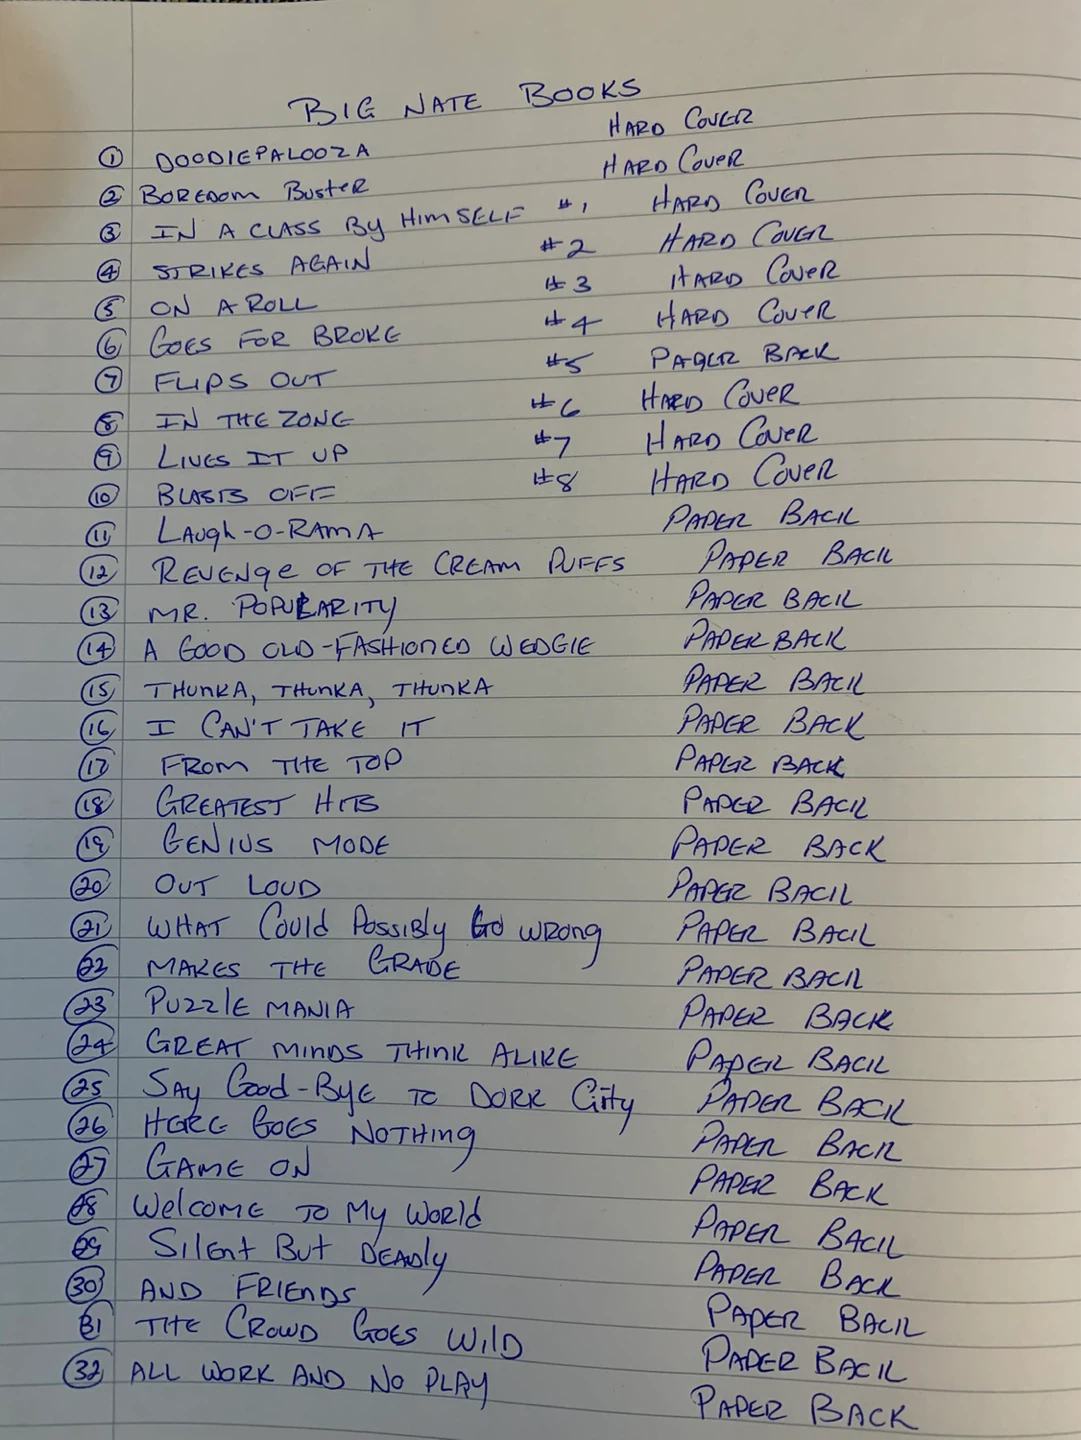 BIG NATE BOOKS
1 DOODIEPALOOZA HARD COVER
2 BOREDOM BUSTER HARD COVER
3 IN A CLASS BY HIMSELF #1 HARD COVER
4 STRIKES AGAIN #2 HARD COVER
5 ON A ROLL #3 HARD COVER
6 GOES FOR BROKE #4 HARD COVER
7 FLIPS OUT #5 PAPER BACK
8 IN THE ZONE #6 HARD COVER
9 LIVES IT UP #7 HARD COVER
10 BLASTS OFF #8 HARD COVER
11 LAUGH-O-RAMA PAPER BACK
12 REVENGE OF THE CREAM PUFFS PAPER BACK
13 MR. POPULARITY PAPER BACK
14 A GOOD OLD-FASHIONED WEDGIE PAPER BACK
15 THUNKA, THUNKA, THUNKA PAPER BACK
16 I CAN'T TAKE IT PAPER BACK
17 FROM THE TOP PAPER BACK
18 GREATEST HITS PAPER BACK
19 GENIUS MODE PAPER BACK
20 OUT LOUD PAPER BACK
21 WHAT COULD POSSIBLY GO WRONG PAPER BACK
22 MAKES THE GRADE PAPER BACK
23 PUZZLE MANIA PAPER BACK
24 GREAT MINDS THINK ALIKE PAPER BACK
25 SAY GOOD-BYE TO DORK CITY PAPER BACK
26 HERE GOES NOTHING PAPER BACK
27 GAME ON PAPER BACK
28 WELCOME TO MY WORLD PAPER BACK
29 SILENT BUT DEADLY PAPER BACK
30 AND FRIENDS PAPER BACK
31 THE CROWD GOES WILD PAPER BACK
32 ALL WORK AND NO PLAY PAPER BACK